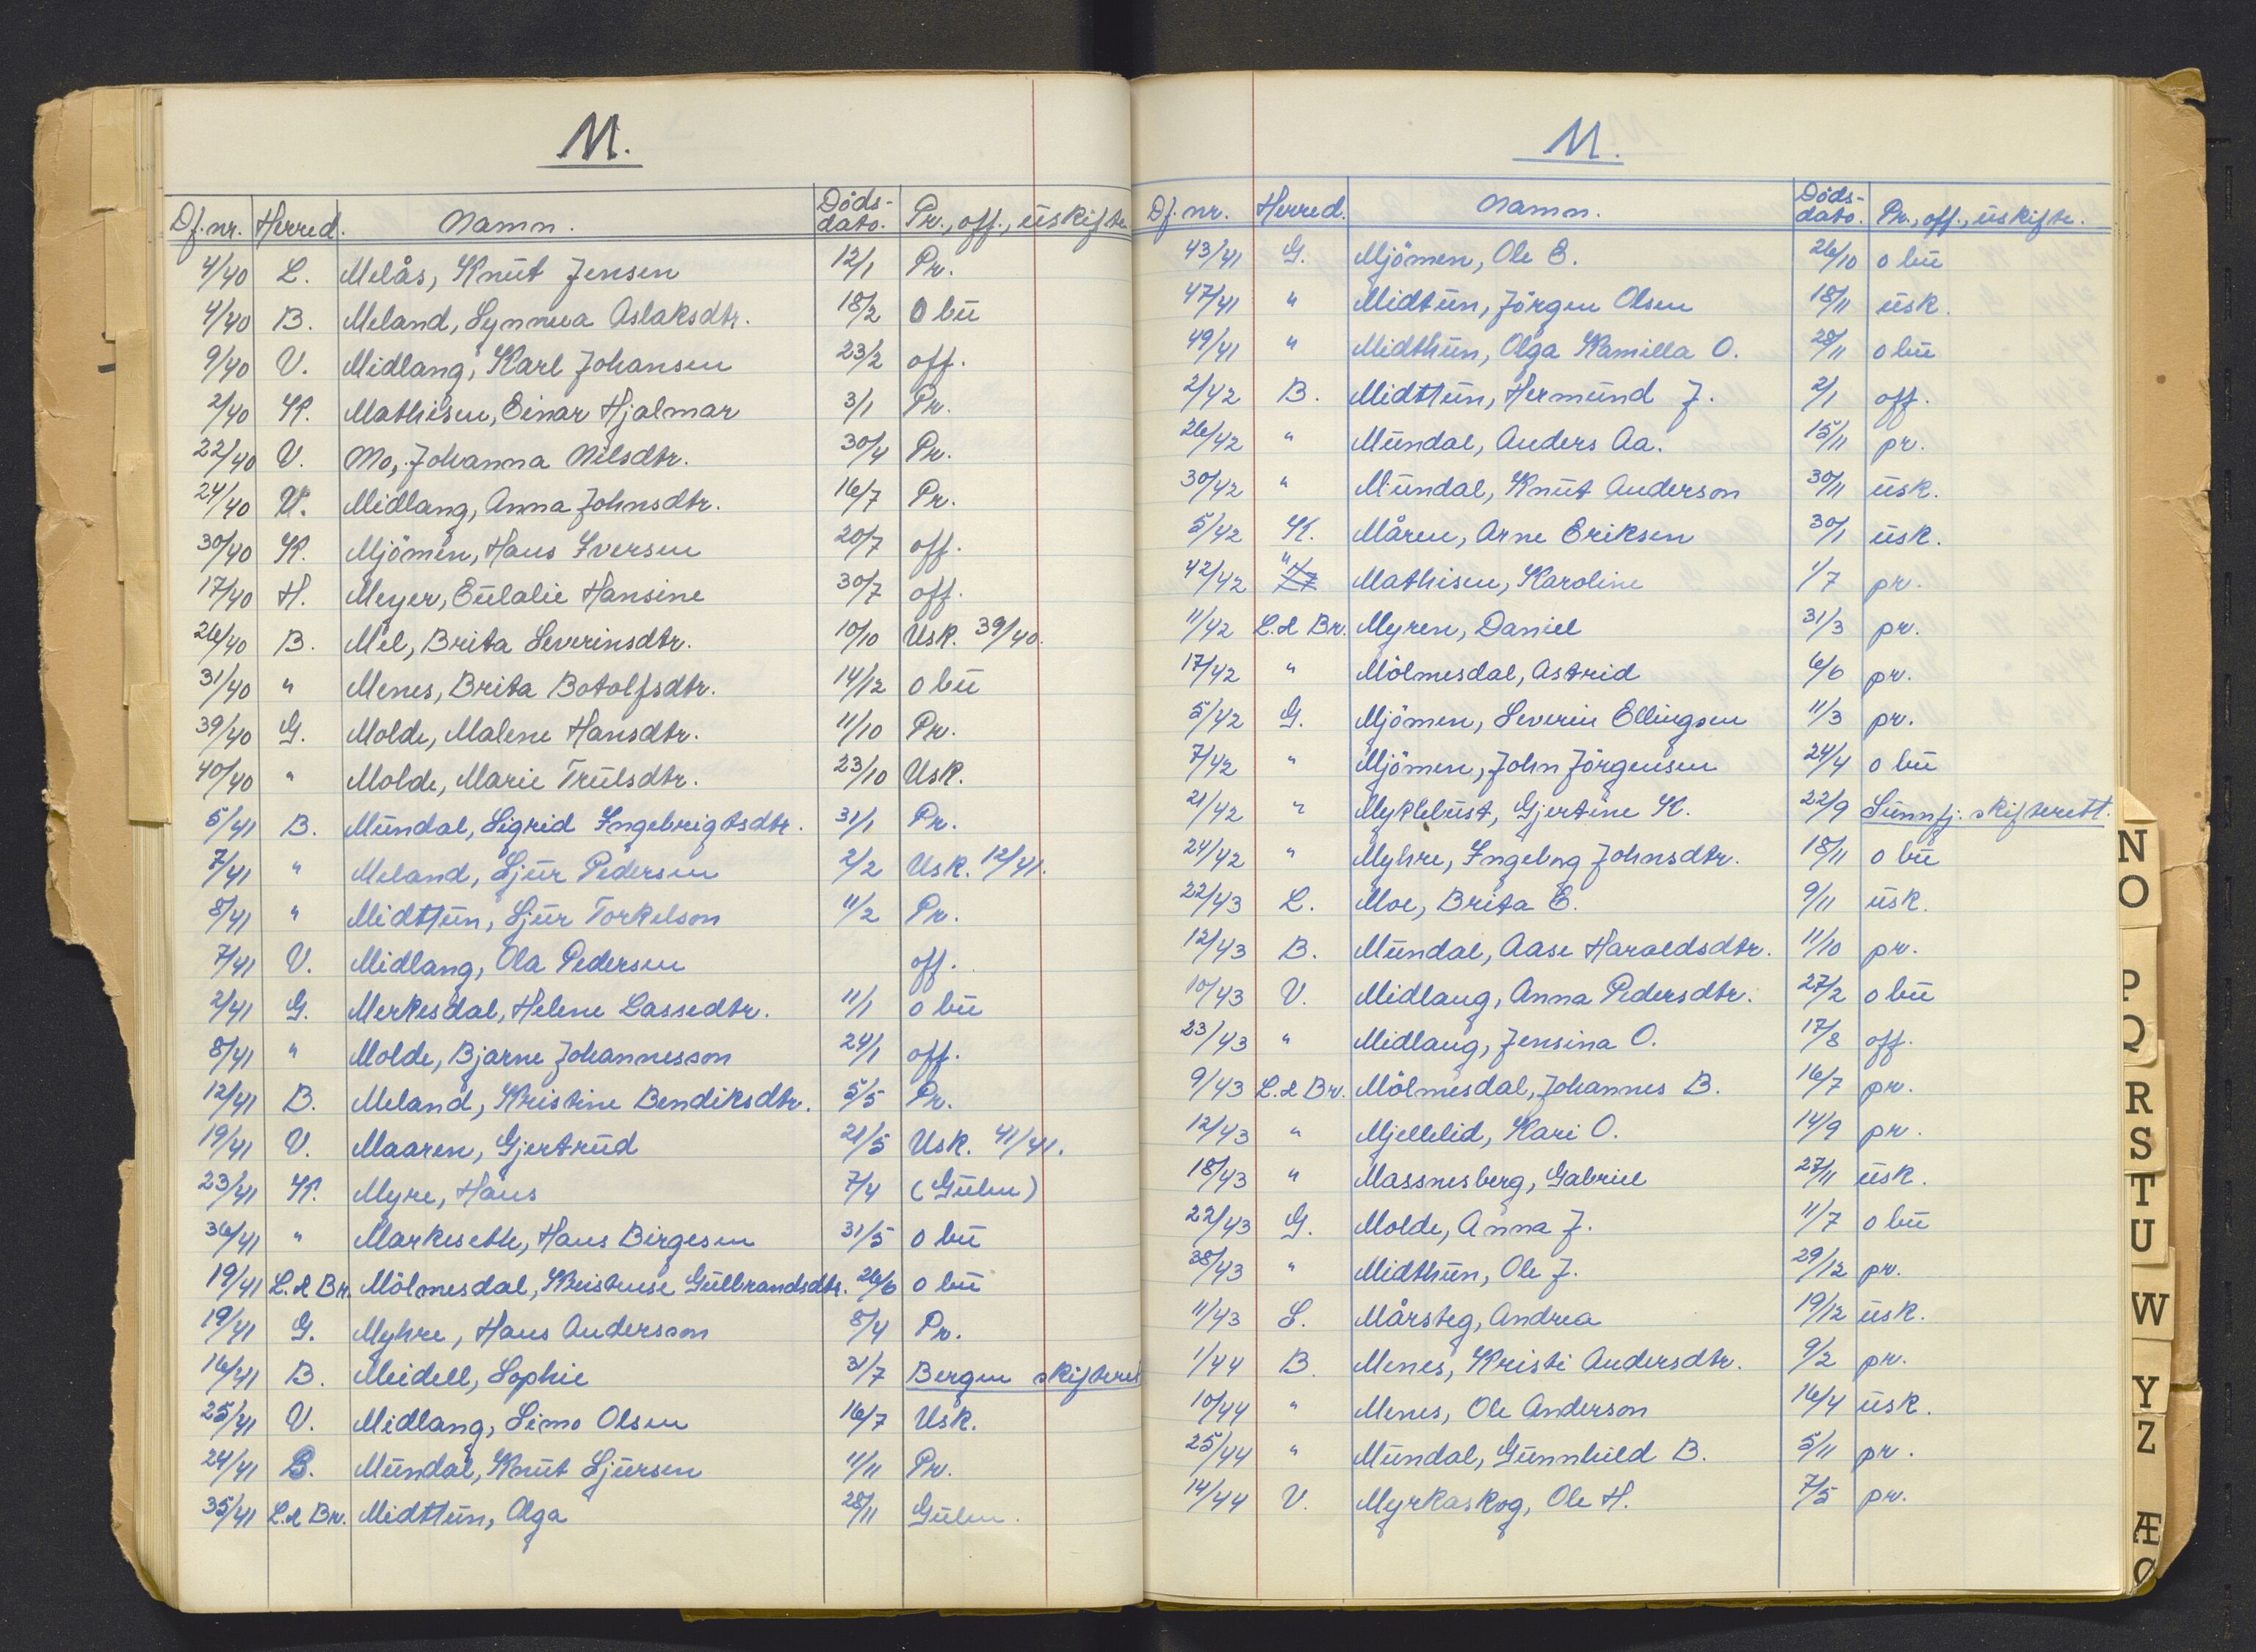 M.
Df. nr. Herred. Namn. Døds-dato. Pr., off., uskifte
4/40 L. Melås, Knut Jensen 12/1 Pr.
4/40 B. Meland, Synneva Aslaksdtr. 18/2 O bu
9/40 V. Midlang, Karl Johansen 23/2 off.
2/40 K. Mathisen, Einar Hjalmar 3/1 Pr.
22/40 V. Mo, Johanna Nilsdtr. 30/4 Pr.
24/40 V. Midlang, Anna Johnsdtr. 16/7 Pr.
30/40 K. Mjömen, Hans Iversen 20/7 off.
17/40 H. Meyer, Eulalie Hansine 30/7 off.
26/40 B. Mel, Brita Severinsdtr. 10/10 Usk. 39/40.
31/40 " Menes, Brita Botolfsdtr. 14/12 o bu
39/40 G. Molde, Malene Hansdtr. 11/10 Pr.
40/40 " Molde, Marie Trulsdtr. 23/10 Usk.
5/41 B. Mundal, Sigrid Ingebrigtsdtr. 31/1 Pr.
7/41 " Meland, Sjur Pedersen 2/2 Usk. 12/41.
8/41 " Midttun, Sjur Torkelson 11/2 Pr.
7/41 V. Midlang, Ola Pedersen off.
2/41 G. Merkesdal, Helene Lassedtr. 11/1 o bu
8/41 " Molde, Bjarne Johannesson 24/1 off.
12/41 B. Meland, Kristine Bendiksdtr. 5/5 Pr.
19/41 V. Maaren, Gjertrud 21/5 Usk. 41/41.
23/41 K. Myre, Hans 7/4 (Gulen)
36/41 " Markeseth, Hans Birgesen 31/5 o bu
19/41 L. & Br. Mölmesdal, Kristense Gulbrandsdtr. 26/6 o bu
19/41 G. Myhre, Hans Andersson 8/4 Pr.
16/41 B. Meidell, Sophie 31/7 Bergen skifteret
25/41 V. Midlang, Simo Olsen 16/7 Usk.
24/41 B. Mundal, Knut Sjursen 11/11 Pr.
35/41 L. & Br. Midttun, Olga 28/11 Gulen.
M.
Df. nr. Herred. Namn. Døds-dato. Pr., off., uskifte.
43/41 G. Mjömen, Ole E. 26/10 o bu
47/41 " Midtun, Jörgen Olsen 18/11 usk.
49/41 " Midthun, Olga Kamilla O. 28/11 o bu
2/42 B. Midttun, Hermund J. 2/1 off.
26/42 " Mundal, Anders Aa. 15/11 pr.
30/42 " Mundal, Knut Anderson 30/11 usk.
5/42 K. Måren, Arne Eriksen 30/1 usk.
42/42 " Mathisen, Karoline 1/7 pr.
11/42 L. & Br. Myren, Daniel 31/3 pr.
17/42 " Mölmesdal, Astrid 6/6 pr.
5/42 G. Mjömen, Severin Ellingsen 11/3 pr.
7/42 " Mjömen, John Jörgensen 24/4 o bu
21/42 " Myklebust, Gjertine K. 22/9 Sunnfj. skifterett.
24/42 " Myhre, Ingeborg Johnsdtr. 18/11 o bu
22/43 L. Moe, Brita E. 9/11 usk.
12/43 B. Mundal, Aase Haraldsdtr. 11/10 pr.
10/43 V. Midlang, Anna Pedersdtr. 27/2 o bu
23/43 " Midlang, Jensina O. 17/8 off.
9/43 L. & Br. Mölmesdal, Johannes B. 16/7 pr.
12/43 " Mjellelid, Kari O. 14/9 pr.
18/43 " Massnesberg, Gabriel 27/11 usk.
22/43 G. Molde, Anna J. 11/7 o bu
38/43 " Midthun, Ole J. 29/12 pr.
11/43 S. Mårsteg, Andrea 19/12 usk.
1/44 B. Menes, Kristi Andersdtr. 9/2 pr.
10/44 " Menes, Ole Anderson 16/4 usk.
25/44 " Mundal, Gunnhild B. 5/11 pr.
14/44 V. Myrkaskog, Ole H. 7/5 pr.
N
O
P
Q
R
S
T
U
W
Y
Z
Æ
Ø